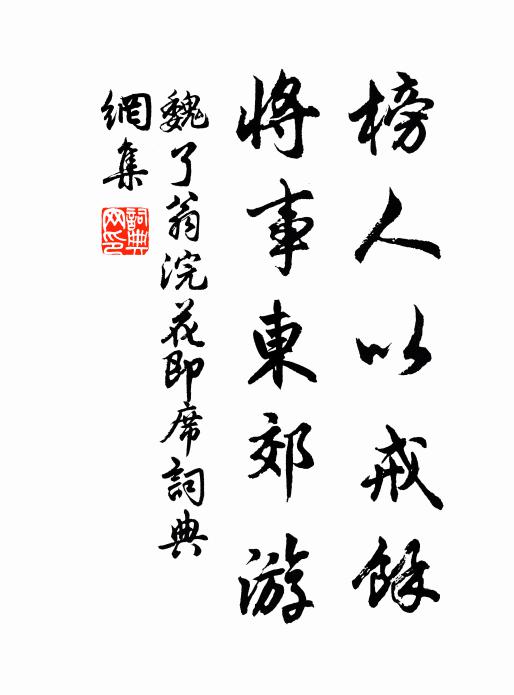 榜人以戒餘
將事東郊游
魏了翁浣花即席詞典
網集
詞典网印